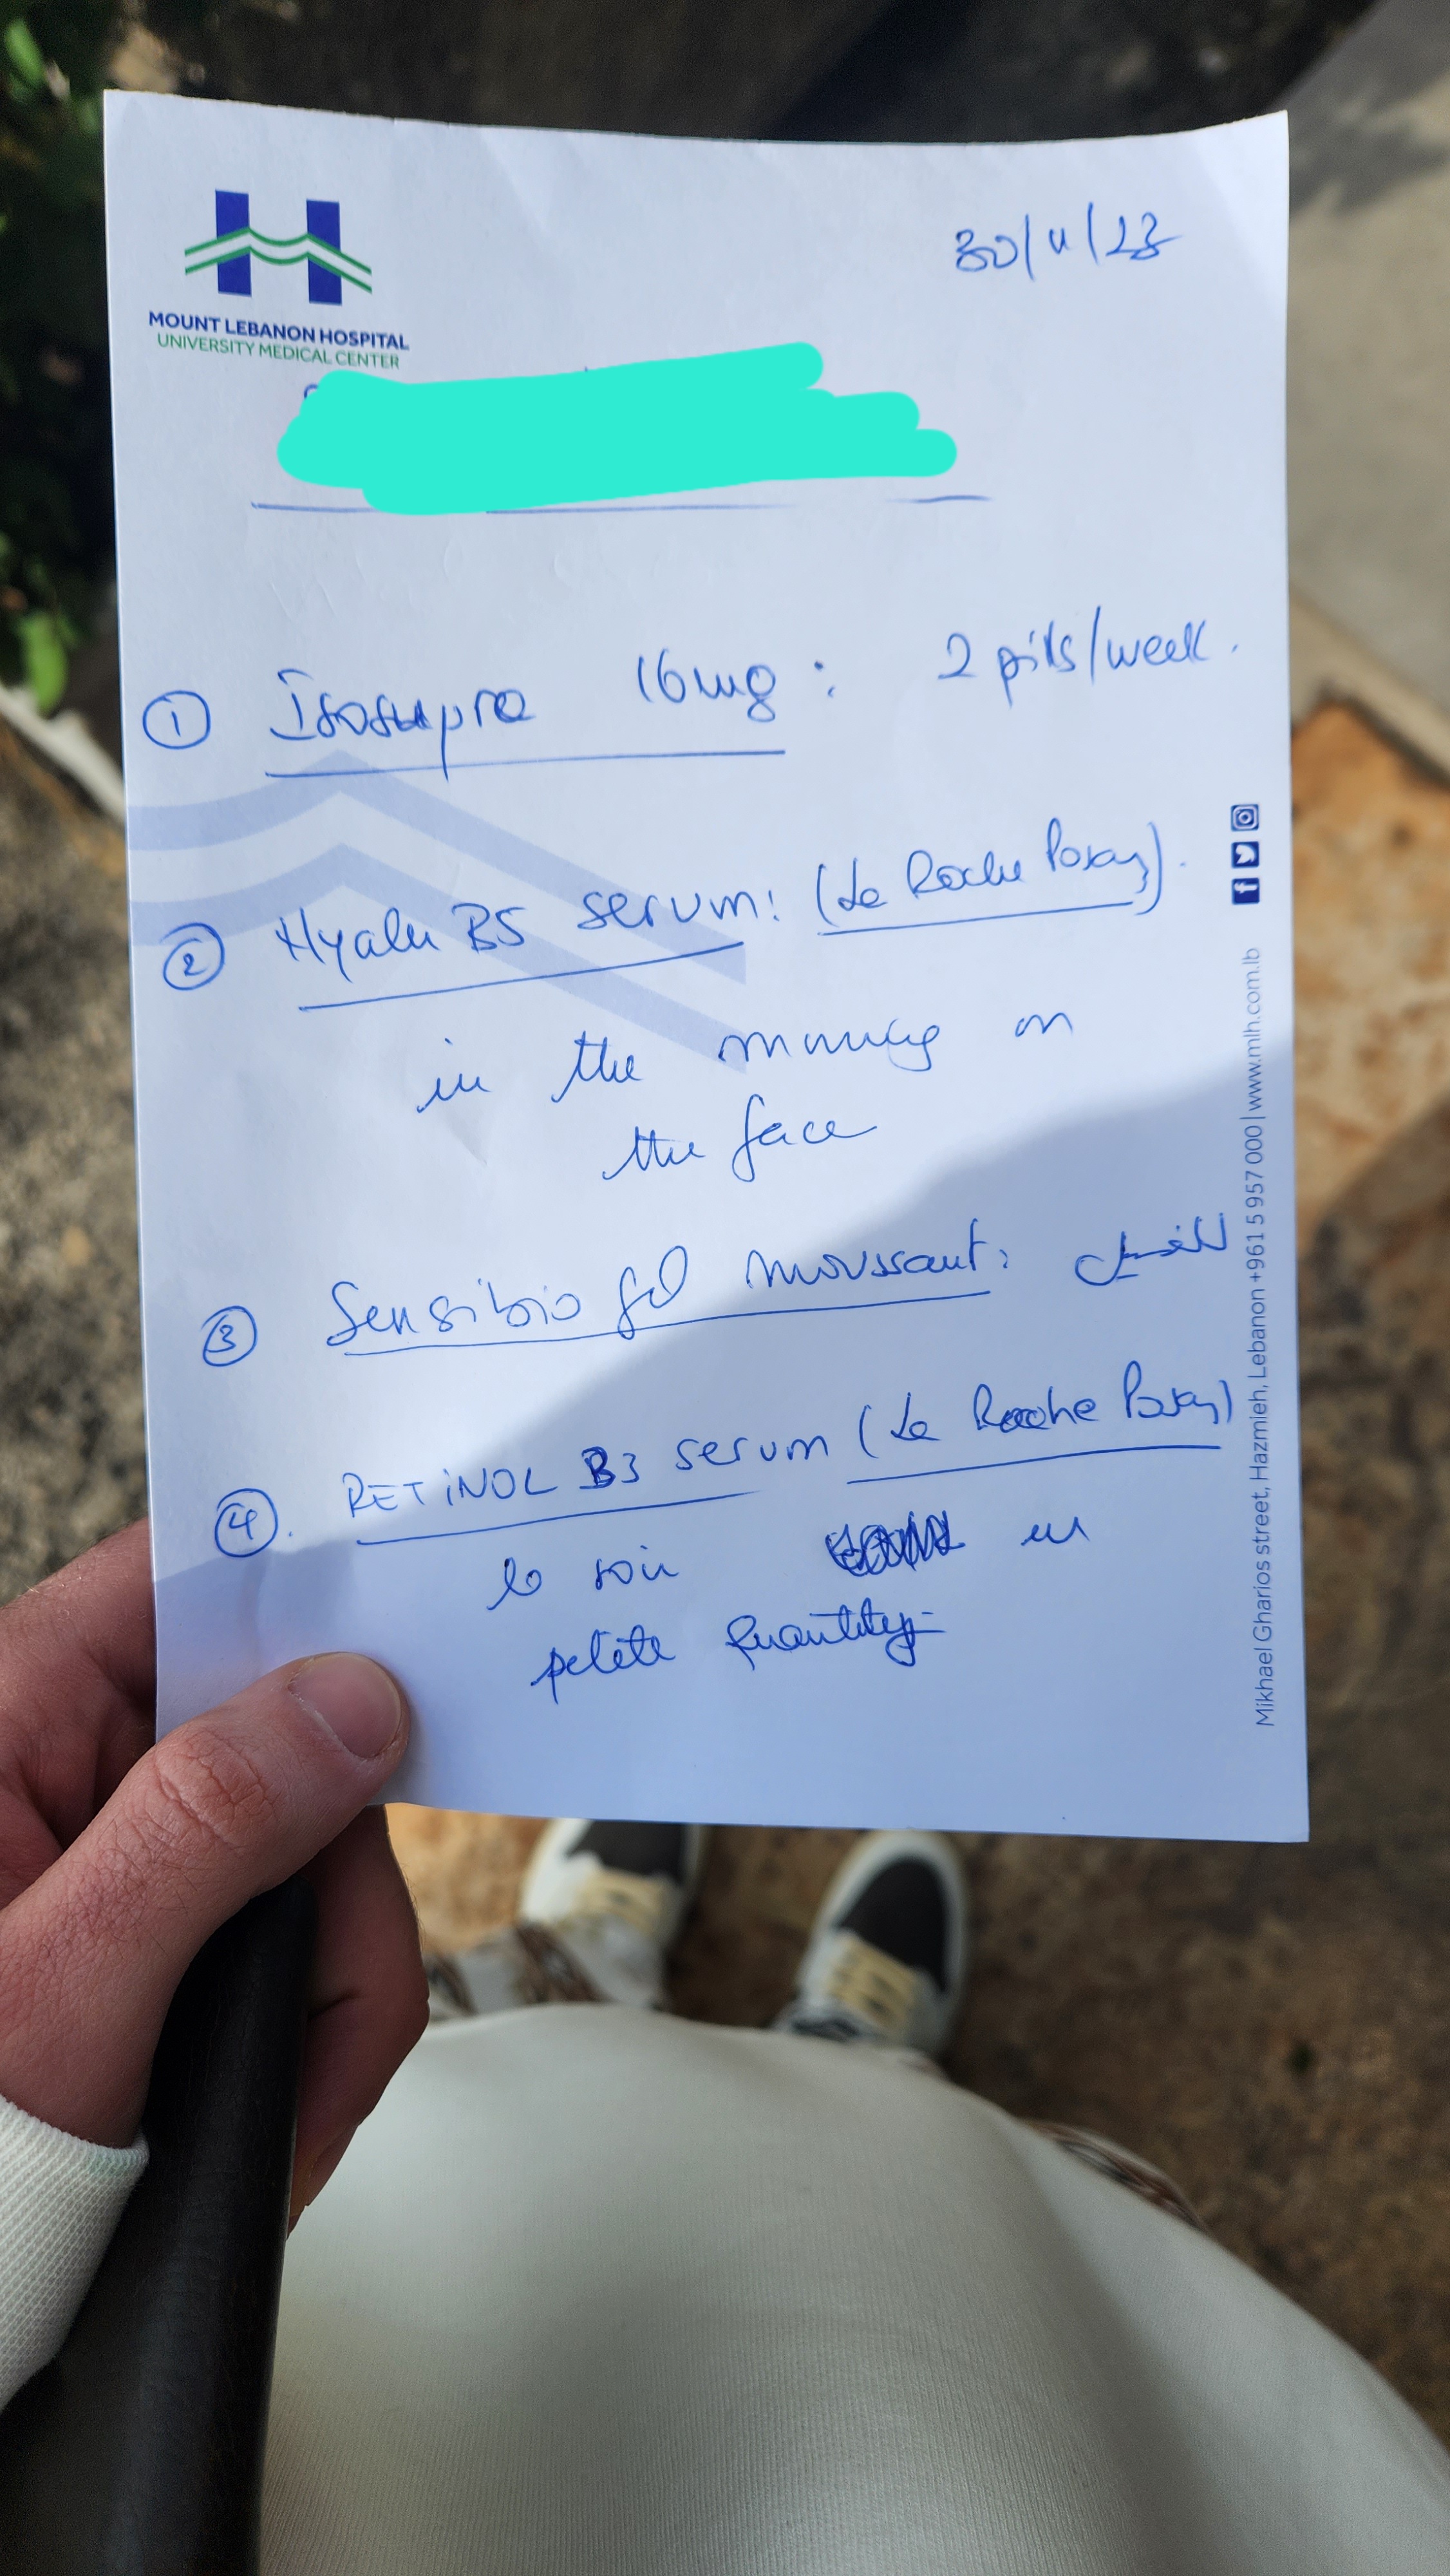 MOUNT LEBANON HOSPITAL
UNIVERSITY MEDICAL CENTER
30/11/23
① Isosupra 16mg : 2 pills/week.
② Hyalu B5 serum: (La Roche Posay).
in the morning on
the face
③ Sensibio gel moussant: للغسيل
④. RETINOL B3 serum (La Roche Posay)
le soir en
petite quantity
Mikhael Gharios street, Hazmieh, Lebanon +961 5 957 000 | www.mlh.com.lb